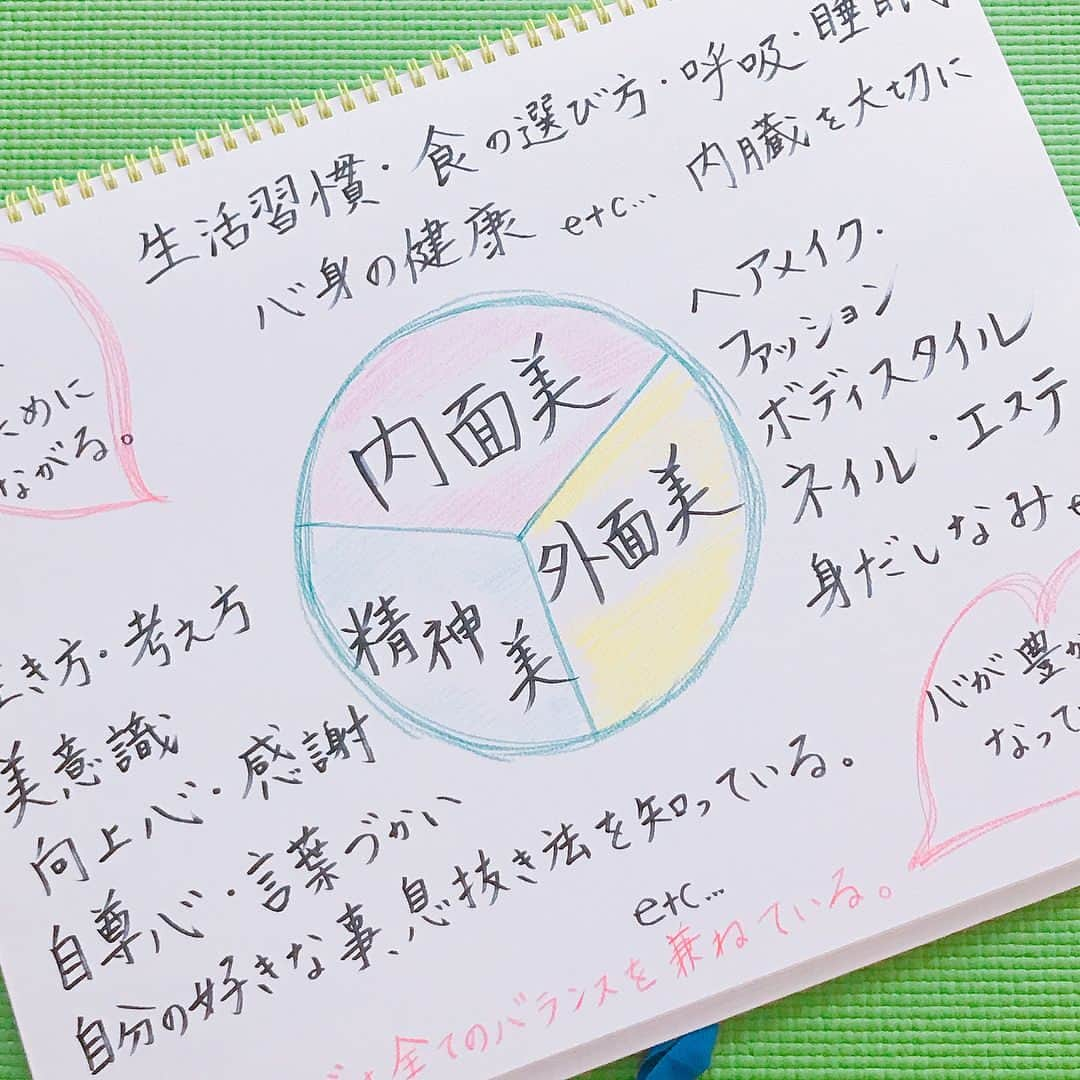 生活習慣・食の選び方・呼吸・睡眠
心身の健康 etc... 内臓を大切に
ために
ながる。
内面美
外面美
精神美
ヘアメイク・
ファッション
ボディスタイル
ネイル・エステ
身だしなみ
生き方・考え方
美意識
向上心・感謝
自尊心・言葉づかい
自分の好きな事、息抜き法を知っている。
etc...
心が豊か
なって
全てのバランスを兼ねている。